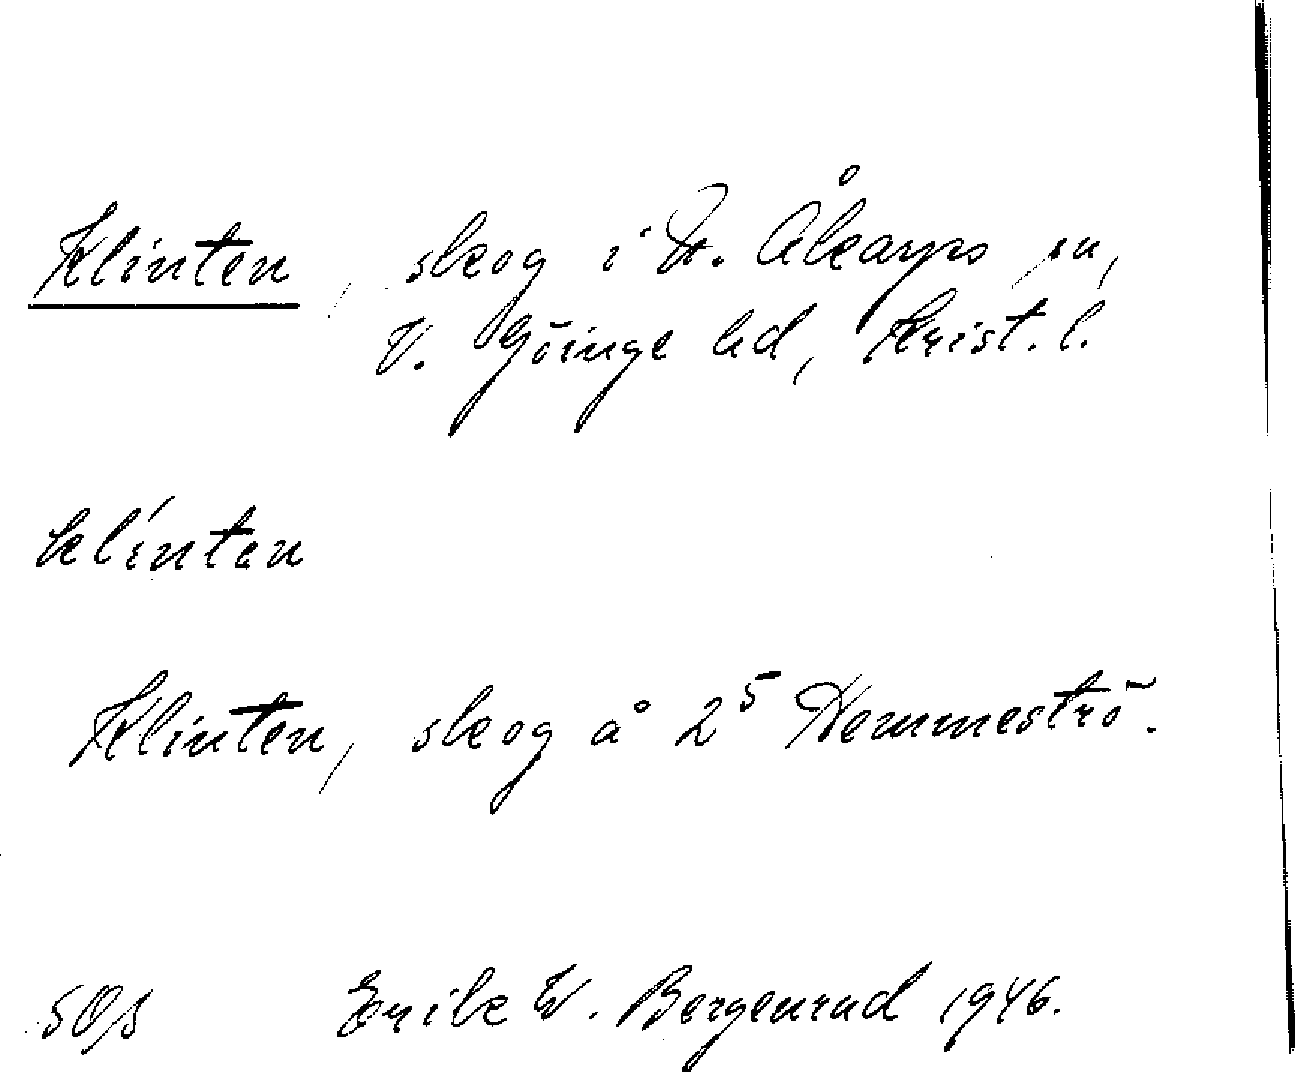 Klinten, skog i N. Åkarps sn,
V. Göinge hd, Krist. l.
klíntan
Klinten, skog å 2⁵ Hemmeströ.
Erik W. Bergenrud 1946.